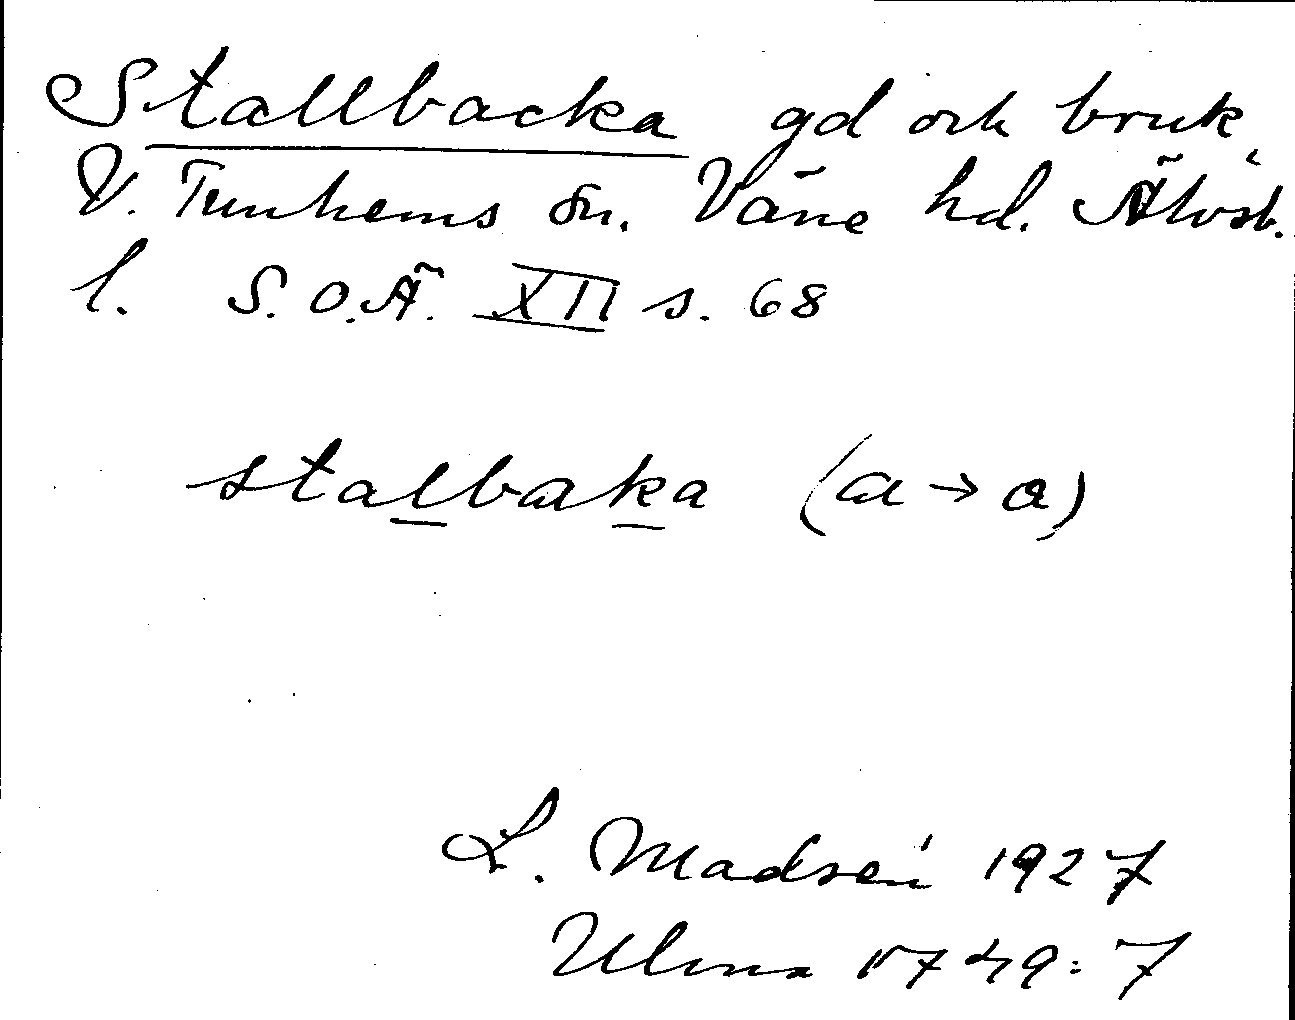 Stallbacka gd och bruk,
V. Tunhems sn. Väne hd. Älvsb.
l. S.O.Ä. XII s. 68
stalbaka (a → a)
L. Madsén 1927
Ulma 1749:7